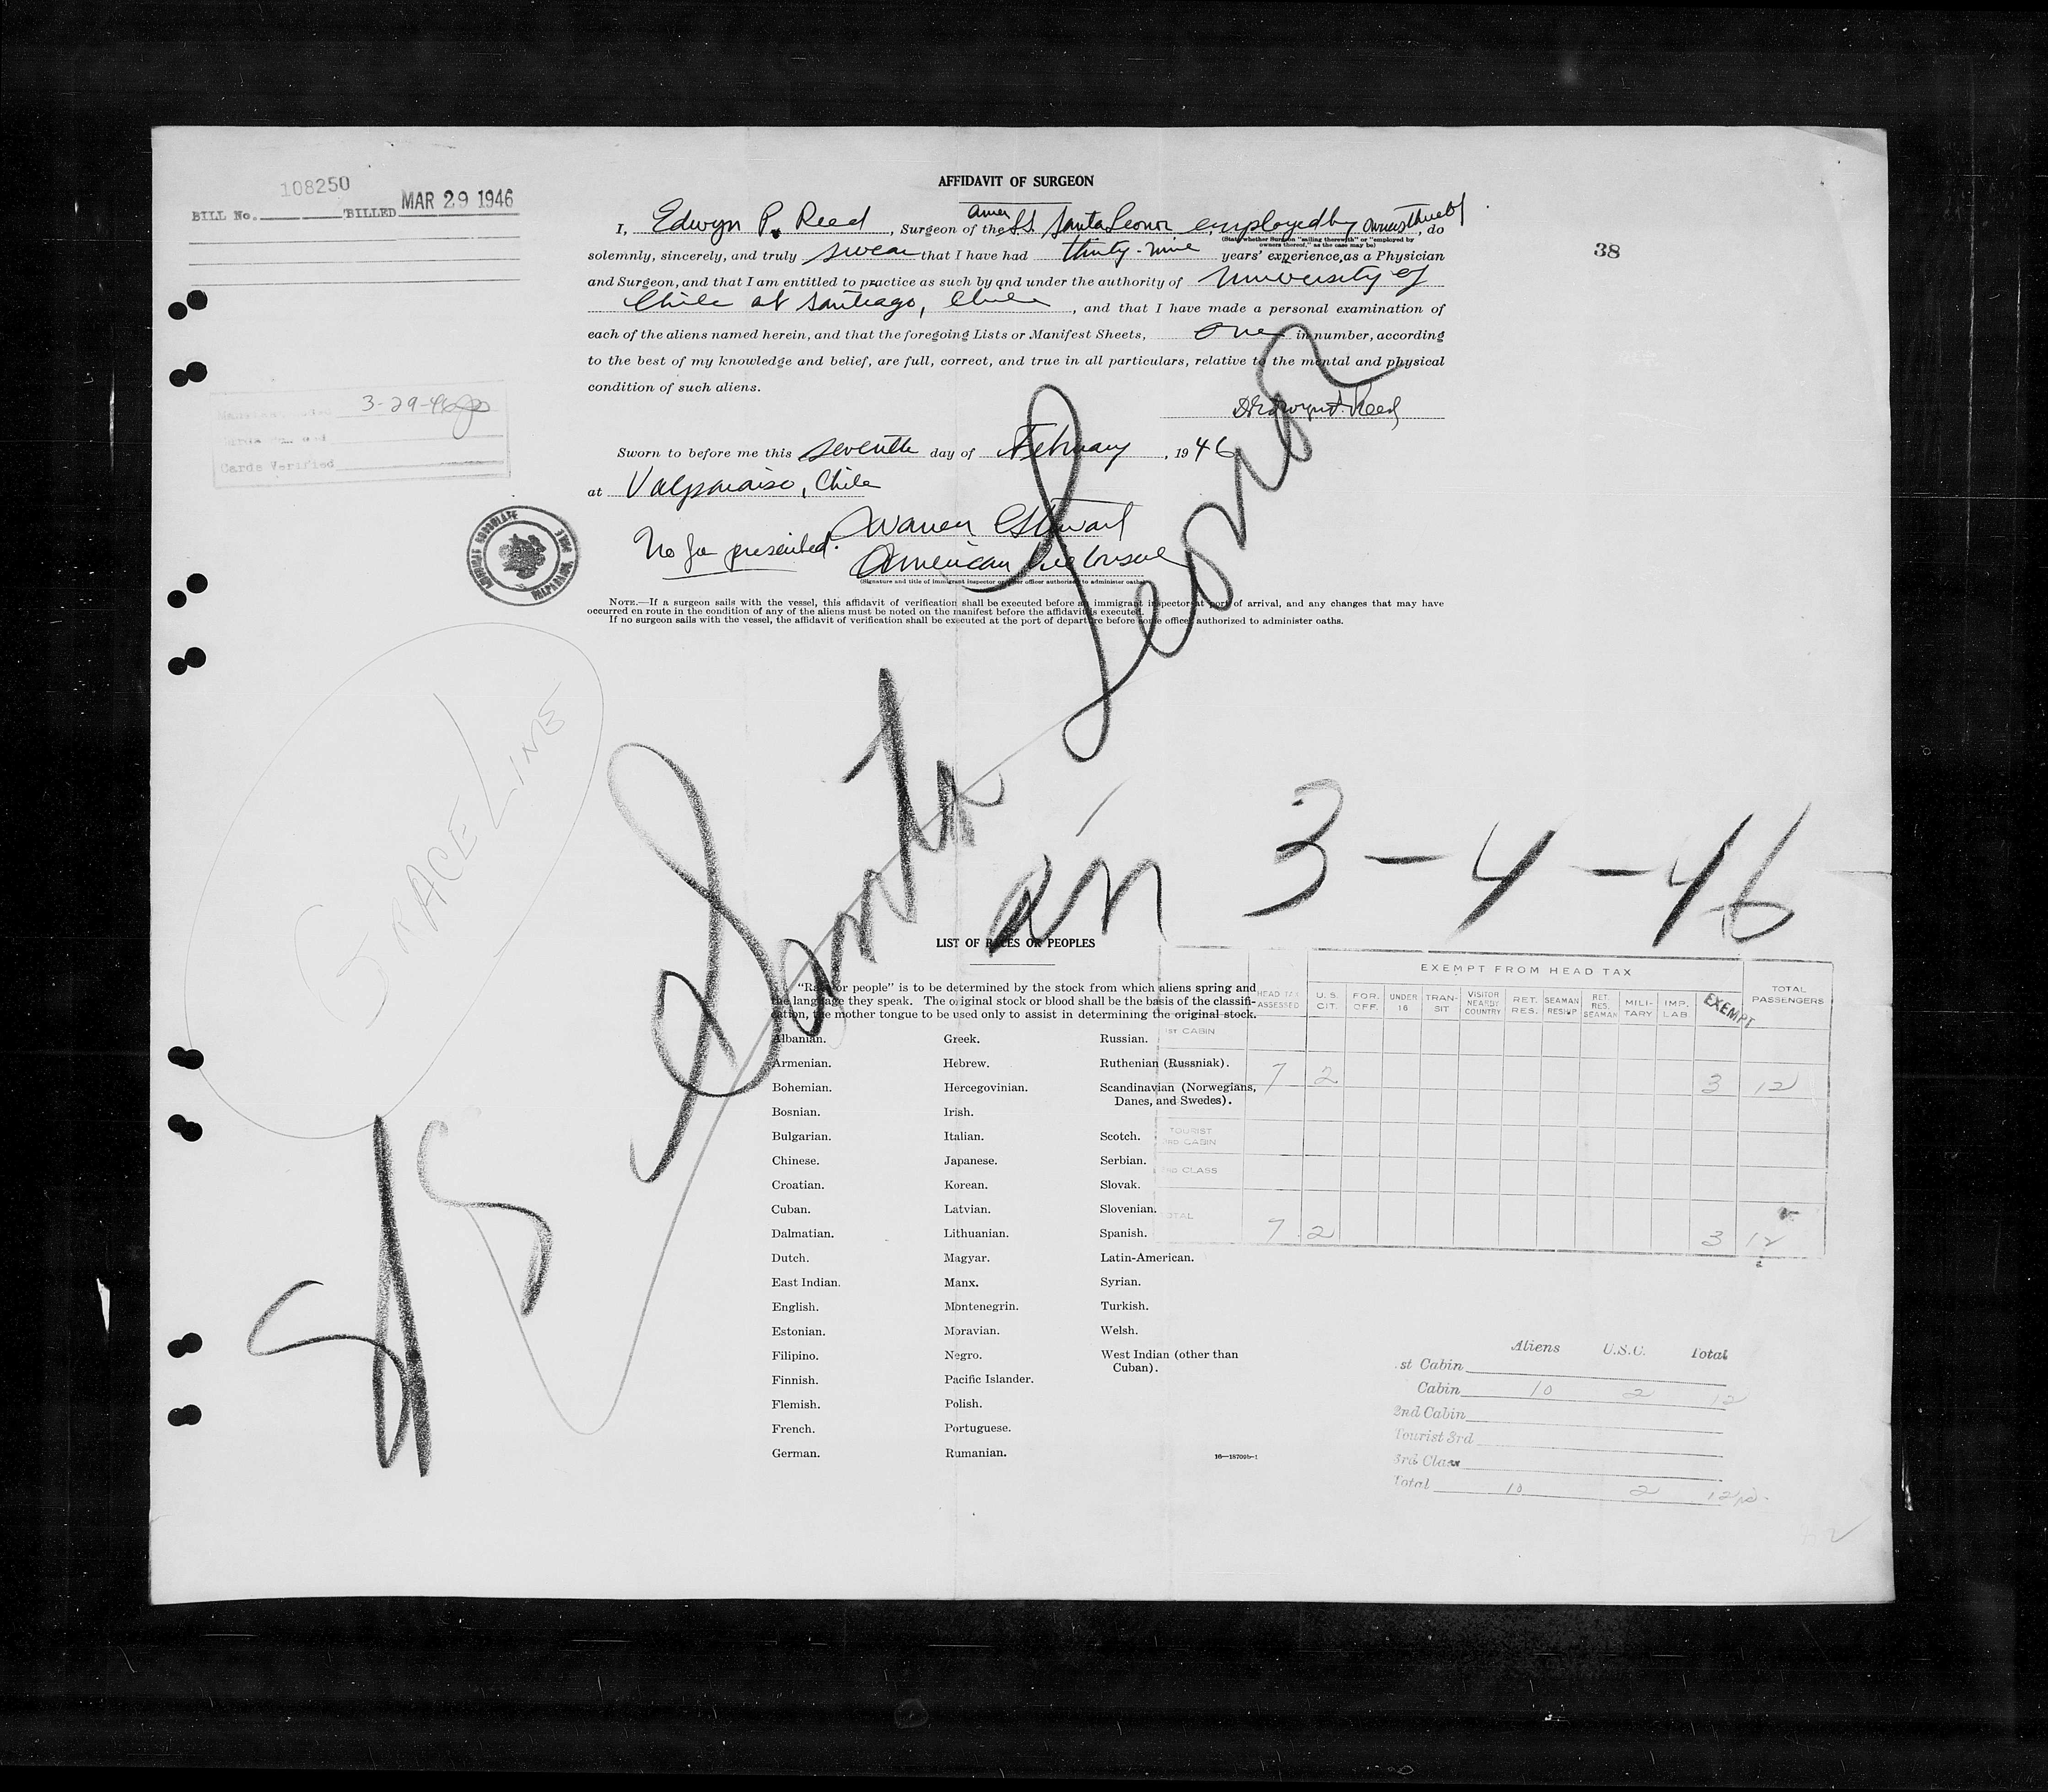 108250
BILL No. BILLED MAR 29 1946
38
AFFIDAVIT OF SURGEON
I, Edwyn P. Reed, Surgeon of the Amer SS. Santa Leonor employed by owners thereof, do
(State whether Surgeon "sailing therewith" or "employed by
owners thereof," as the case may be)
solemnly, sincerely, and truly swear that I have had thirty-nine years' experience as a Physician
and Surgeon, and that I am entitled to practice as such by and under the authority of University of
Chile at Santiago, Chile, and that I have made a personal examination of
each of the aliens named herein, and that the foregoing Lists or Manifest Sheets, one in number, according
to the best of my knowledge and belief, are full, correct, and true in all particulars, relative to the mental and physical
condition of such aliens.
Dr Edwyn P. Reed
3-29-46
Cards Verified
Sworn to before me this seventh day of February, 1946
at Valparaiso, Chile
No fee prescribed. Warren C Stewart
American Vice Consul
(Signature and title of immigrant inspector or other officer authorized to administer oaths)
AMERICAN CONSULATE
VALPARAISO, CHILE
NOTE.—If a surgeon sails with the vessel, this affidavit of verification shall be executed before an immigrant inspector at port of arrival, and any changes that may have
occurred en route in the condition of any of the aliens must be noted on the manifest before the affidavit is executed.
If no surgeon sails with the vessel, the affidavit of verification shall be executed at the port of departure before some officer authorized to administer oaths.
GRACE LINE
S/S Santa Leonor
arr 3-4-46
LIST OF RACES OR PEOPLES
"Race or people" is to be determined by the stock from which aliens spring and
the language they speak. The original stock or blood shall be the basis of the classifi-
cation, the mother tongue to be used only to assist in determining the original stock.
Albanian. Greek. Russian.
Armenian. Hebrew. Ruthenian (Russniak).
Bohemian. Hercegovinian. Scandinavian (Norwegians,
Danes, and Swedes).
Bosnian. Irish.
Bulgarian. Italian. Scotch.
Chinese. Japanese. Serbian.
Croatian. Korean. Slovak.
Cuban. Latvian. Slovenian.
Dalmatian. Lithuanian. Spanish.
Dutch. Magyar. Latin-American.
East Indian. Manx. Syrian.
English. Montenegrin. Turkish.
Estonian. Moravian. Welsh.
Filipino. Negro. West Indian (other than
Cuban).
Finnish. Pacific Islander.
Flemish. Polish.
French. Portuguese.
German. Rumanian.
16—18709b-1
EXEMPT FROM HEAD TAX
HEAD TAX ASSESSED U.S. CIT. FOR. OFF. UNDER 16 TRAN-SIT VISITOR NEARBY COUNTRY RET. RES. SEAMAN RESHIP RET. RES. SEAMAN MILI-TARY IMP. LAB. EXEMPT TOTAL PASSENGERS
1ST CABIN
7 2 3 12
TOURIST
3RD CABIN
3RD CLASS
TOTAL 7 2 3 12
Aliens U.S.C. Total
1st Cabin
Cabin 10 2 12
2nd Cabin
Tourist 3rd
3rd Class
Total 10 2 12